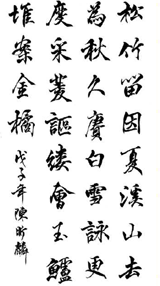 松竹留因夏溪山去
為秋久賡白雪詠更
度采菱謳縷會玉鱸
堆案金橘
戊子年陳昕麟